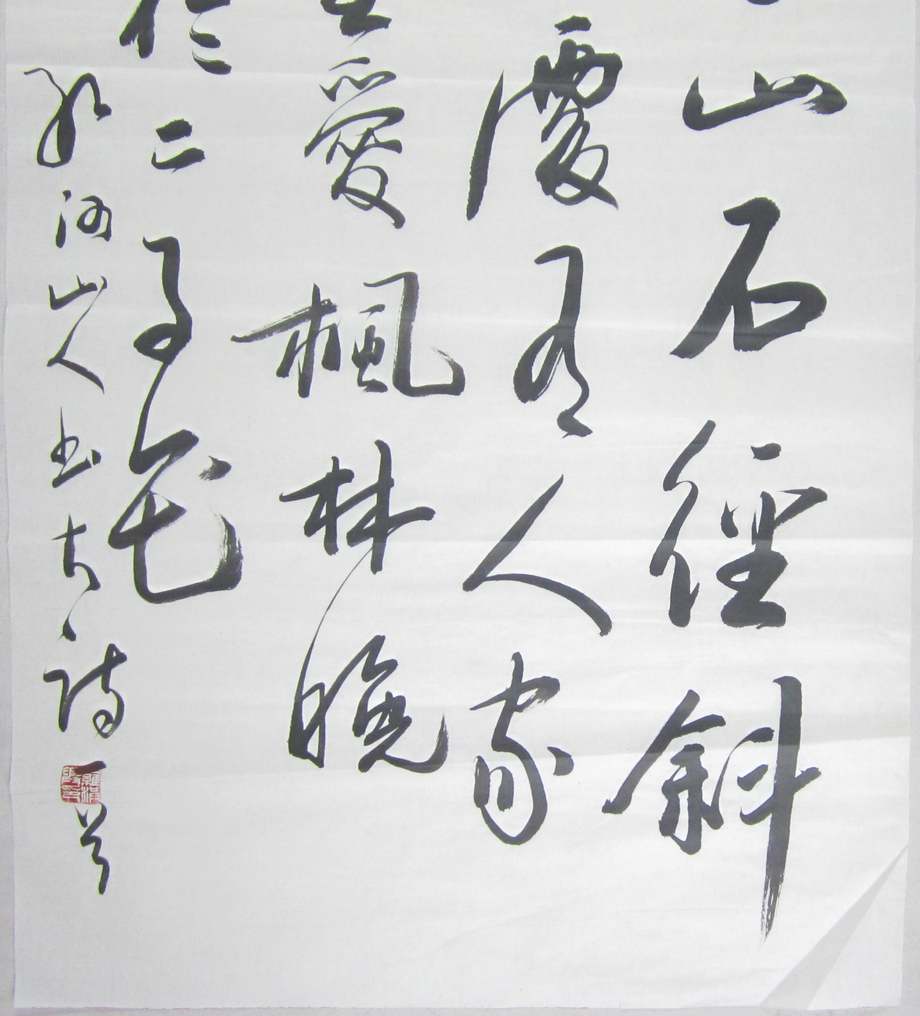 山石徑斜
處有人家
坐愛楓林晚
於二月花
河山人书古诗一首